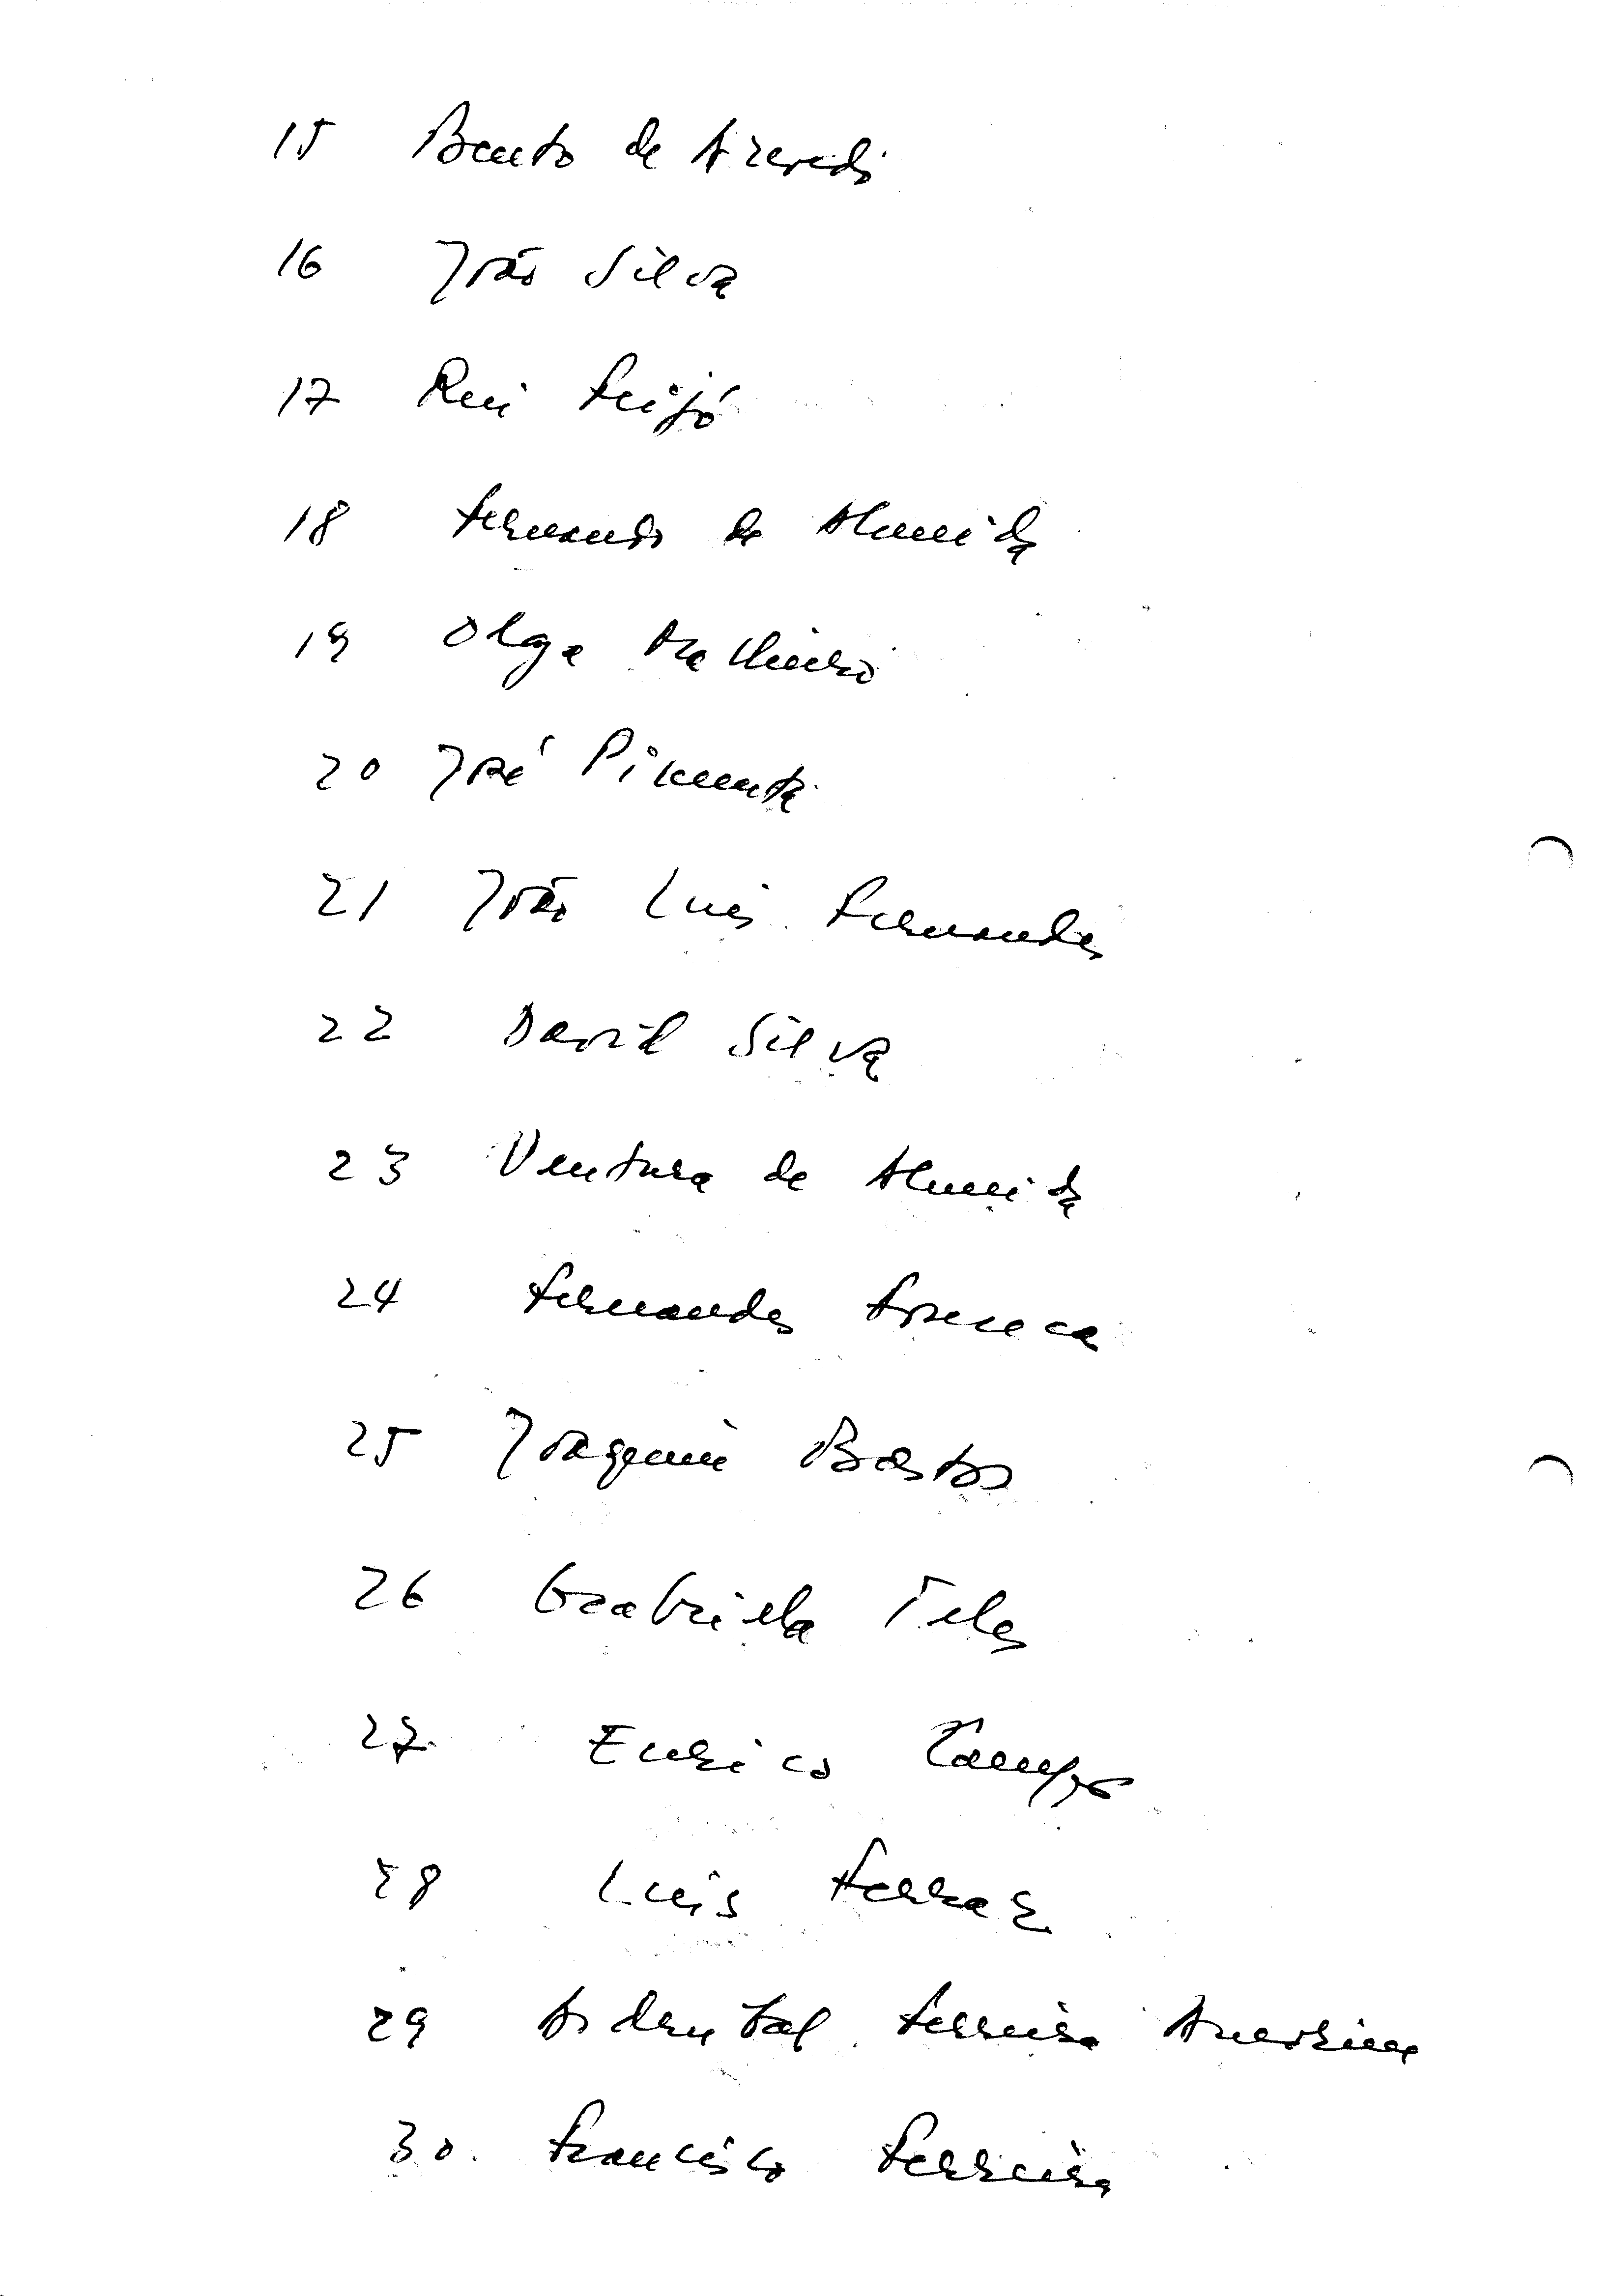 15 Bento de Azevedo
16 João Silva
17 Rui Feijó
18 Fernando de Almeida
19 Olga Malheiro
20 José Pimenta
21 João Luis Fernandes
22 David Silva
23 Ventura de Almeida
24 Fernandes Fonseca
25 Joaquim Bastos
26 Gabriela Teles
27 Eurico Campos
28 Luis Ferraz
29 Ferreira
30. Francisco Ferreira